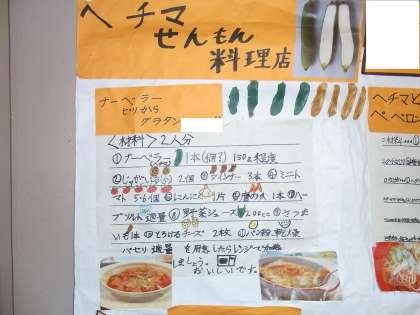 ヘチマ
せんもん
料理店
ナーベラー
ピリから
グラタン
<材料> 2人分
①ナーベラー 1本(個?) 150g程度
②じゃがいも 2個 ③ウインナー 3本 ④ミニト
マト 5~6個 ⑤にんにく 1片 ⑥鷹の爪 1本 ⑦ハー
ブソルト 適量 ⑧野菜ジュース 200cc ⑨さつま
いも 1本 ⑩とろけるチーズ 2枚 ⑪パン粉、乾燥
パセリ 適量 を用意したらレンジで加熱
しましょう。
おいしいです。
ヘチマと
ペペロン